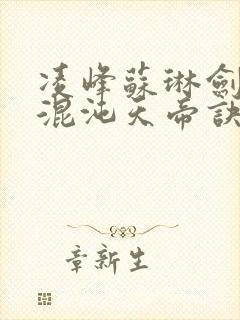 凌峰蘇琳劍
混沌天帝訣
章新生